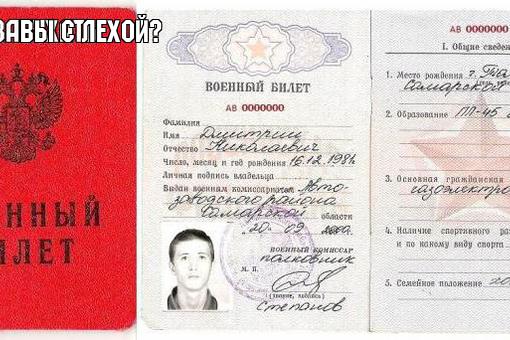 ЗАВЫКСТЛЕХОЙ?
ЕННЫЙ
ИЛЕТ
ВОЕННЫЙ БИЛЕТ
АВ 0000000
Фамилия
Имя Дмитрий
Отчество Николаевич
Число, месяц и год рождения 16.12.198
Личная подпись владельца
Выдан военным комиссариатом Авто-
заводского района
Самарской области
"20" 09
ВОЕННЫЙ КОМИССАР
полковник
М. П.
(звание, подпись)
Степанов
АВ 0000000
I. Общие сведе
1. Место рождения г.
Самарской
2. Образование ПП-45
3. Основная гражданская
газоэлектро
4. Наличие спортивного раз
и по какому виду спорта
5. Семейное положение